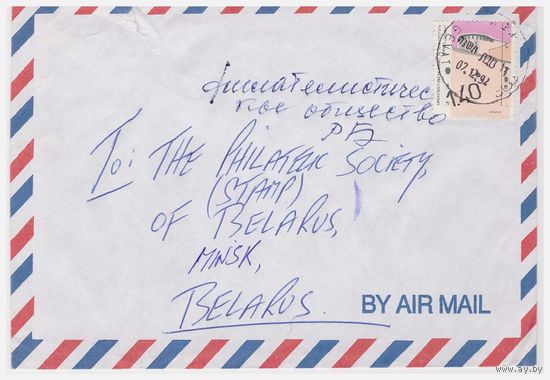 филателистичес
кое общество
РБ
To: THE PHILATELIC SOCIETY,
(STAMP)
OF BELARUS,
MINSK,
BELARUS.
BY AIR MAIL
1.40
02.12.92
www.ay.by